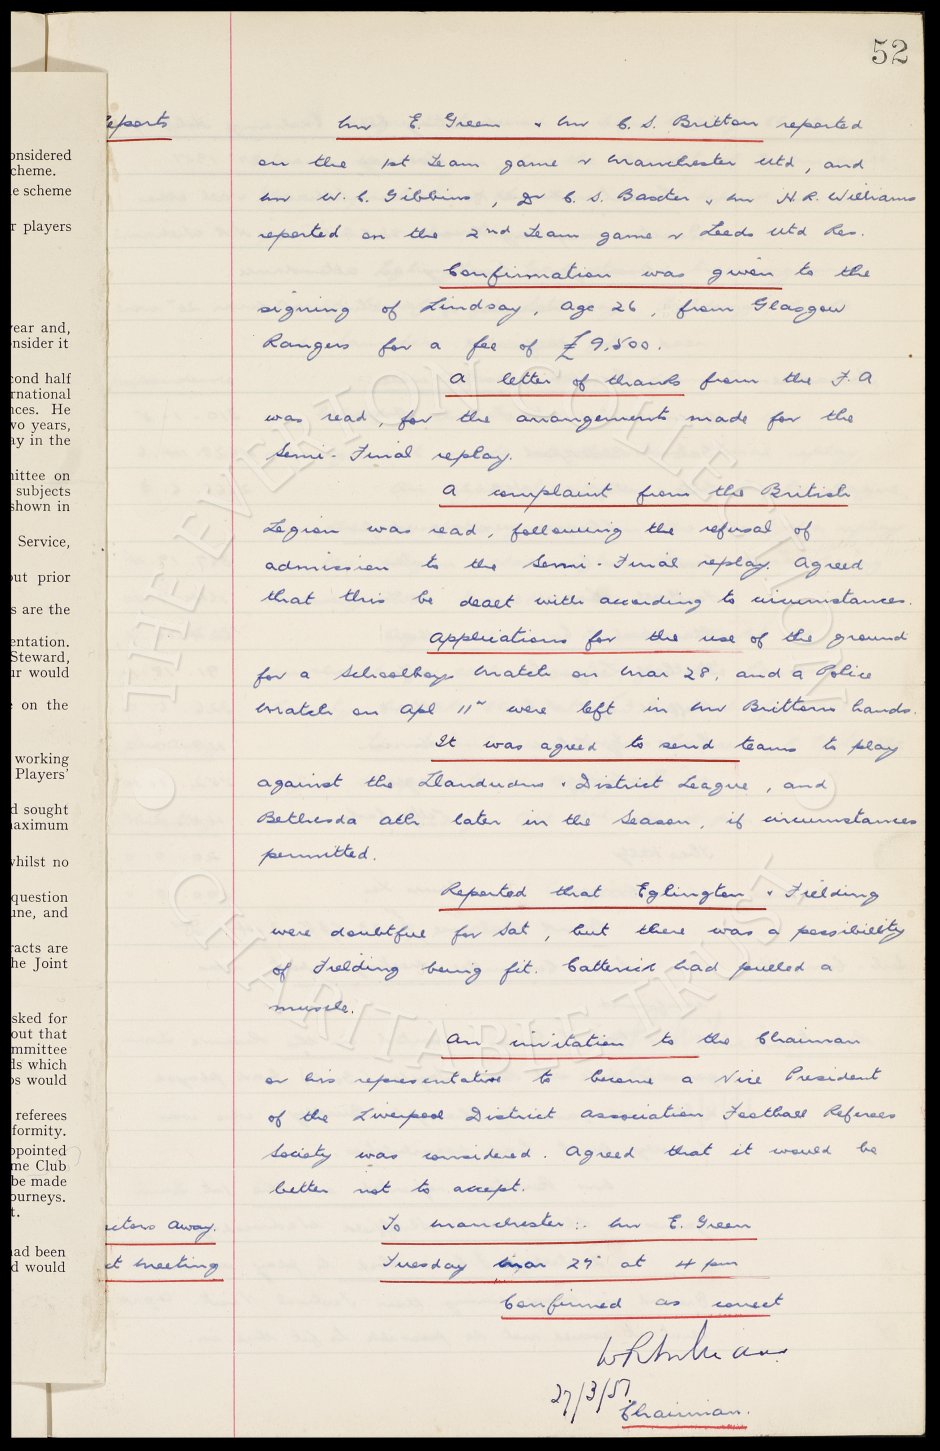 52
eports
Mr E. Green & Mr C. S. Britton reported
on the 1st Team game v Manchester Utd, and
Mr W. C. Gibbins, Dr C. S. Baxter & Mr H. R. Williams
reported on the 2nd Team game v Leeds Utd Res.
Confirmation was given to the
signing of Lindsay, age 26, from Glasgow
Rangers for a fee of £9,500.
A letter of thanks from the F.A
was read, for the arrangements made for the
Semi-Final replay.
A complaint from the British
Legion was read, following the refusal of
admission to the Semi-Final replay. Agreed
that this be dealt with according to circumstances.
Applications for the use of the ground
for a Schoolboys Match on Mar 28, and a Police
Match on Apl 11th were left in Mr Brittons hands.
It was agreed to send teams to play
against the Llandudno & District League, and
Bethesda Ath later in the Season, if circumstances
permitted.
Reported that Eglington & Fielding
were doubtful for Sat, but there was a possibility
of Fielding being fit. Catterick had pulled a
muscle.
An invitation to the Chairman
or his representative to become a Vice President
of the Liverpool District Association Football Referees
Society was considered. Agreed that it would be
better not to accept.
ectors Away.
To Manchester :- Mr E. Green
xt Meeting
Tuesday Mar 27th at 4 pm
Confirmed as correct
27/3/51.
Chairman.
onsidered
cheme.
e scheme
r players
year and,
onsider it
cond half
rnational
nces. He
wo years,
ay in the
mittee on
subjects
shown in
Service,
out prior
s are the
entation.
Steward,
ur would
e on the
working
Players'
d sought
aximum
whilst no
question
une, and
racts are
he Joint
sked for
out that
mmittee
ds which
bs would
referees
formity.
ppointed
me Club
be made
ourneys.
t.
ad been
d would
© THE EVERTON COLLECTION ©
CHARITABLE TRUST